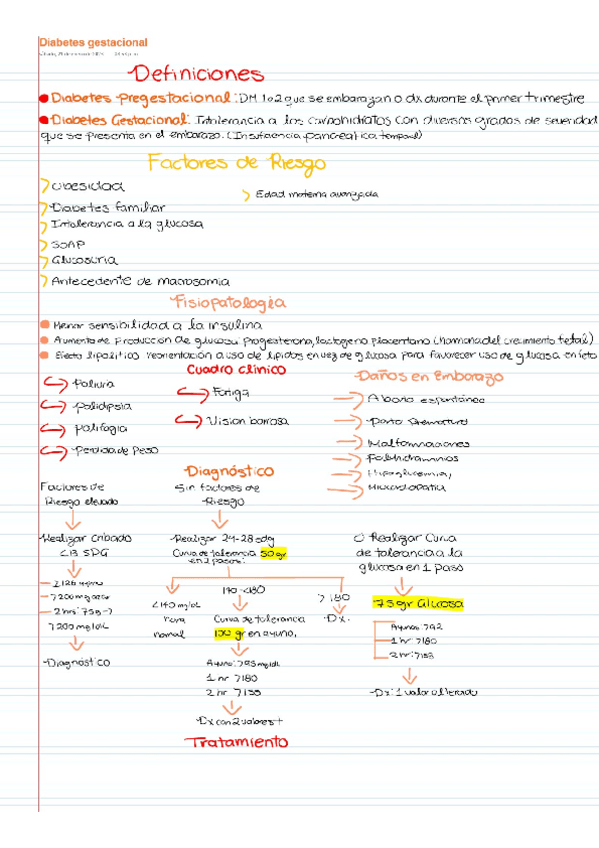 Diabetes gestacional
Definiciones
Diabetes Pregestacional: DM 1 o 2 que se embarazan o dx durante el primer trimestre
Diabetes Gestacional: Intolerancia a los carbohidratos con diversos grados de severidad
que se presenta en el embarazo. (Insuficiencia pancreatica temporal)
Factores de Riesgo
Obesidad
Edad materna avanzada
Diabetes familiar
Intolerancia a la glucosa
SOAP
Glucosuria
Antecedente de macrosomia
Fisiopatología
Menor sensibilidad a la insulina
Aumento de Producción de glucosa progesterona, lactogeno placentario (hormona del crecimiento fetal)
Efecto lipolitico reorientación a uso de lipidos en vez de glucosa para favorecer uso de glucosa en feto
Cuadro clinico
Poliuria
Polidipsia
Polifagia
Perdida de Peso
Fatiga
Vision borrosa
Daños en Embarazo
Aborto espontáneo
Parto Prematuro
Malformaciones
Polihidramnios
Hipoglucemia,
Diagnóstico
Factores de
Riesgo elevado
Realizar cribado
<13 SDG
2 hrs: 75g
7200 mg/dL
Diagnóstico
Sin factores de
Riesgo
Realizar 24-28 sdg
Curva de tolerancia 50 gr
en 2 pasos:
<140 mg/dL
normal
140-180
Curva de tolerancia
100 gr en ayuno,
Ayuno: 795 mg/dL
1 hr 7180
2 hr 7155
Dx con 2 valores +
7180
Dx.
Realizar Curva
de tolerancia a la
glucosa en 1 paso
75 gr Glucosa
Ayuno: 792
1 hr: 7180
2 hr: 7153
Dx: 1 valor alterado
Tratamiento